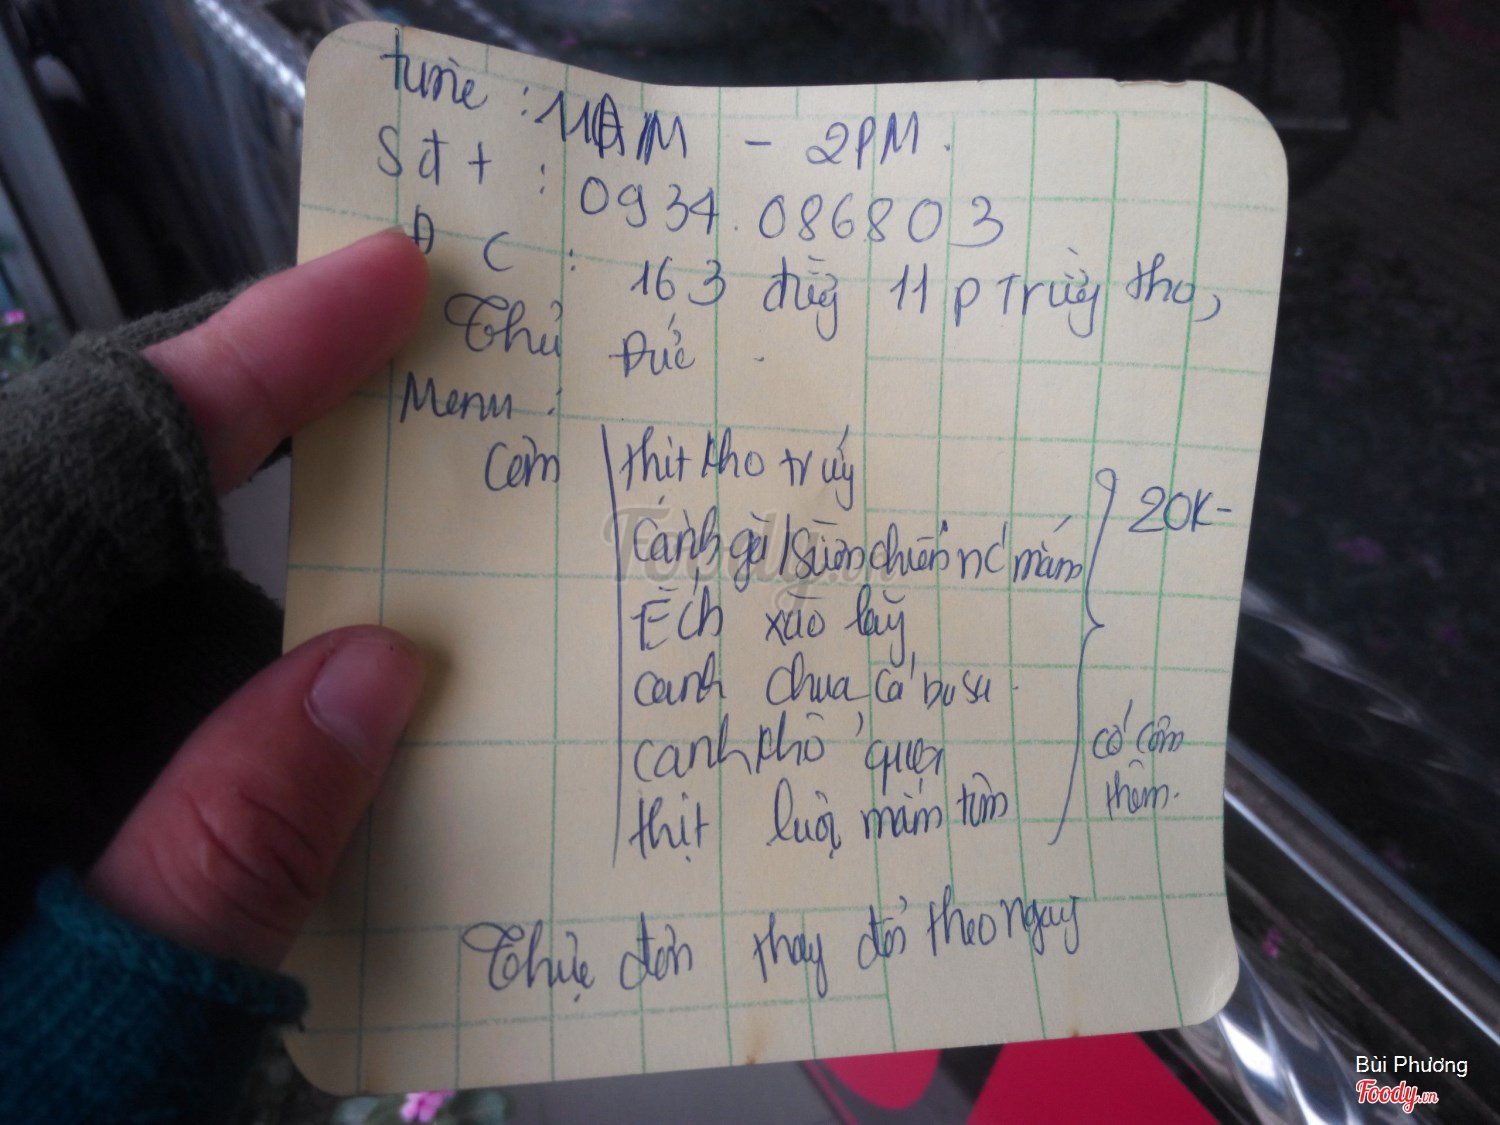 time : 11AM - 2PM.
Sđt : 0934.086803
ĐC : 163 đường 11 P Trường thọ,
Thủ Đức.
Menu :
Cơm
thịt kho trứng
Cánh gà / sườn chiên nc mắm
Ếch xào lăn
canh chua cá
canh khổ qua
thịt luộc mắm tôm
20K-
có cơm
thêm.
Thực đơn thay đổi theo ngày
Foody.vn
Bùi Phương
Foody.vn